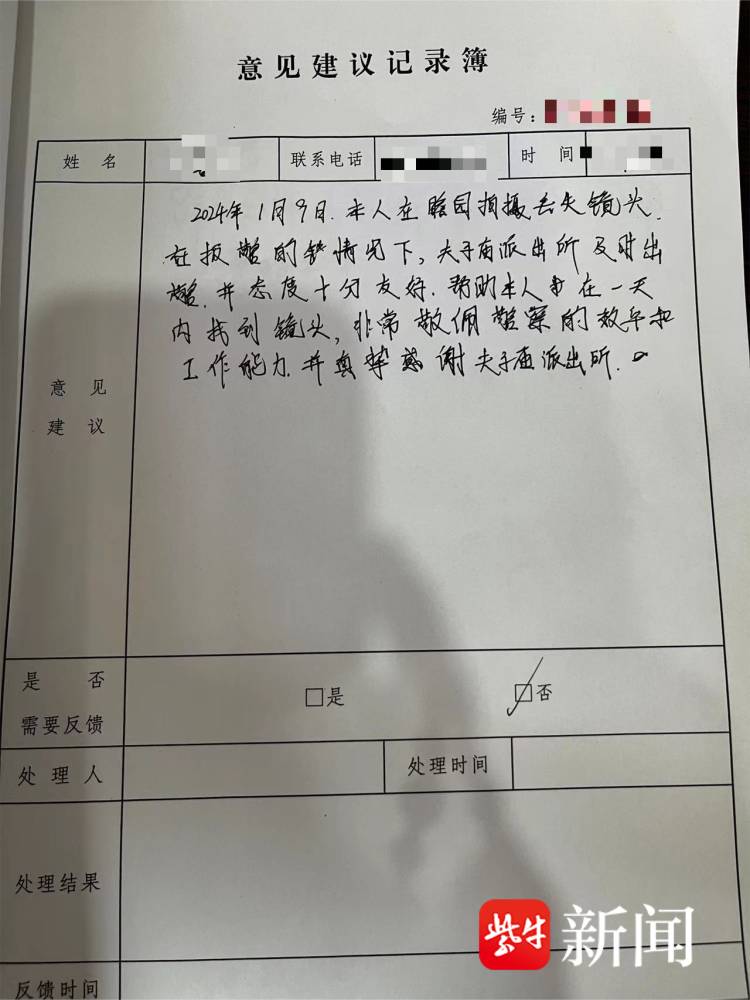 意见建议记录簿
编号：
姓 名 联系电话 时 间
2024年1月9日.本人在瞻园拍摄丢失镜头.
在报警的情况下,夫子庙派出所及时出
警,并态度十分友好.帮助本人在一天
内找到镜头,非常敬佩警察的效率和
工作能力.并真挚感谢夫子庙派出所.
意 见
建 议
是 否
需要反馈
□是 □否
处 理 人 处理时间
处理结果
反馈时间
紫牛 新闻